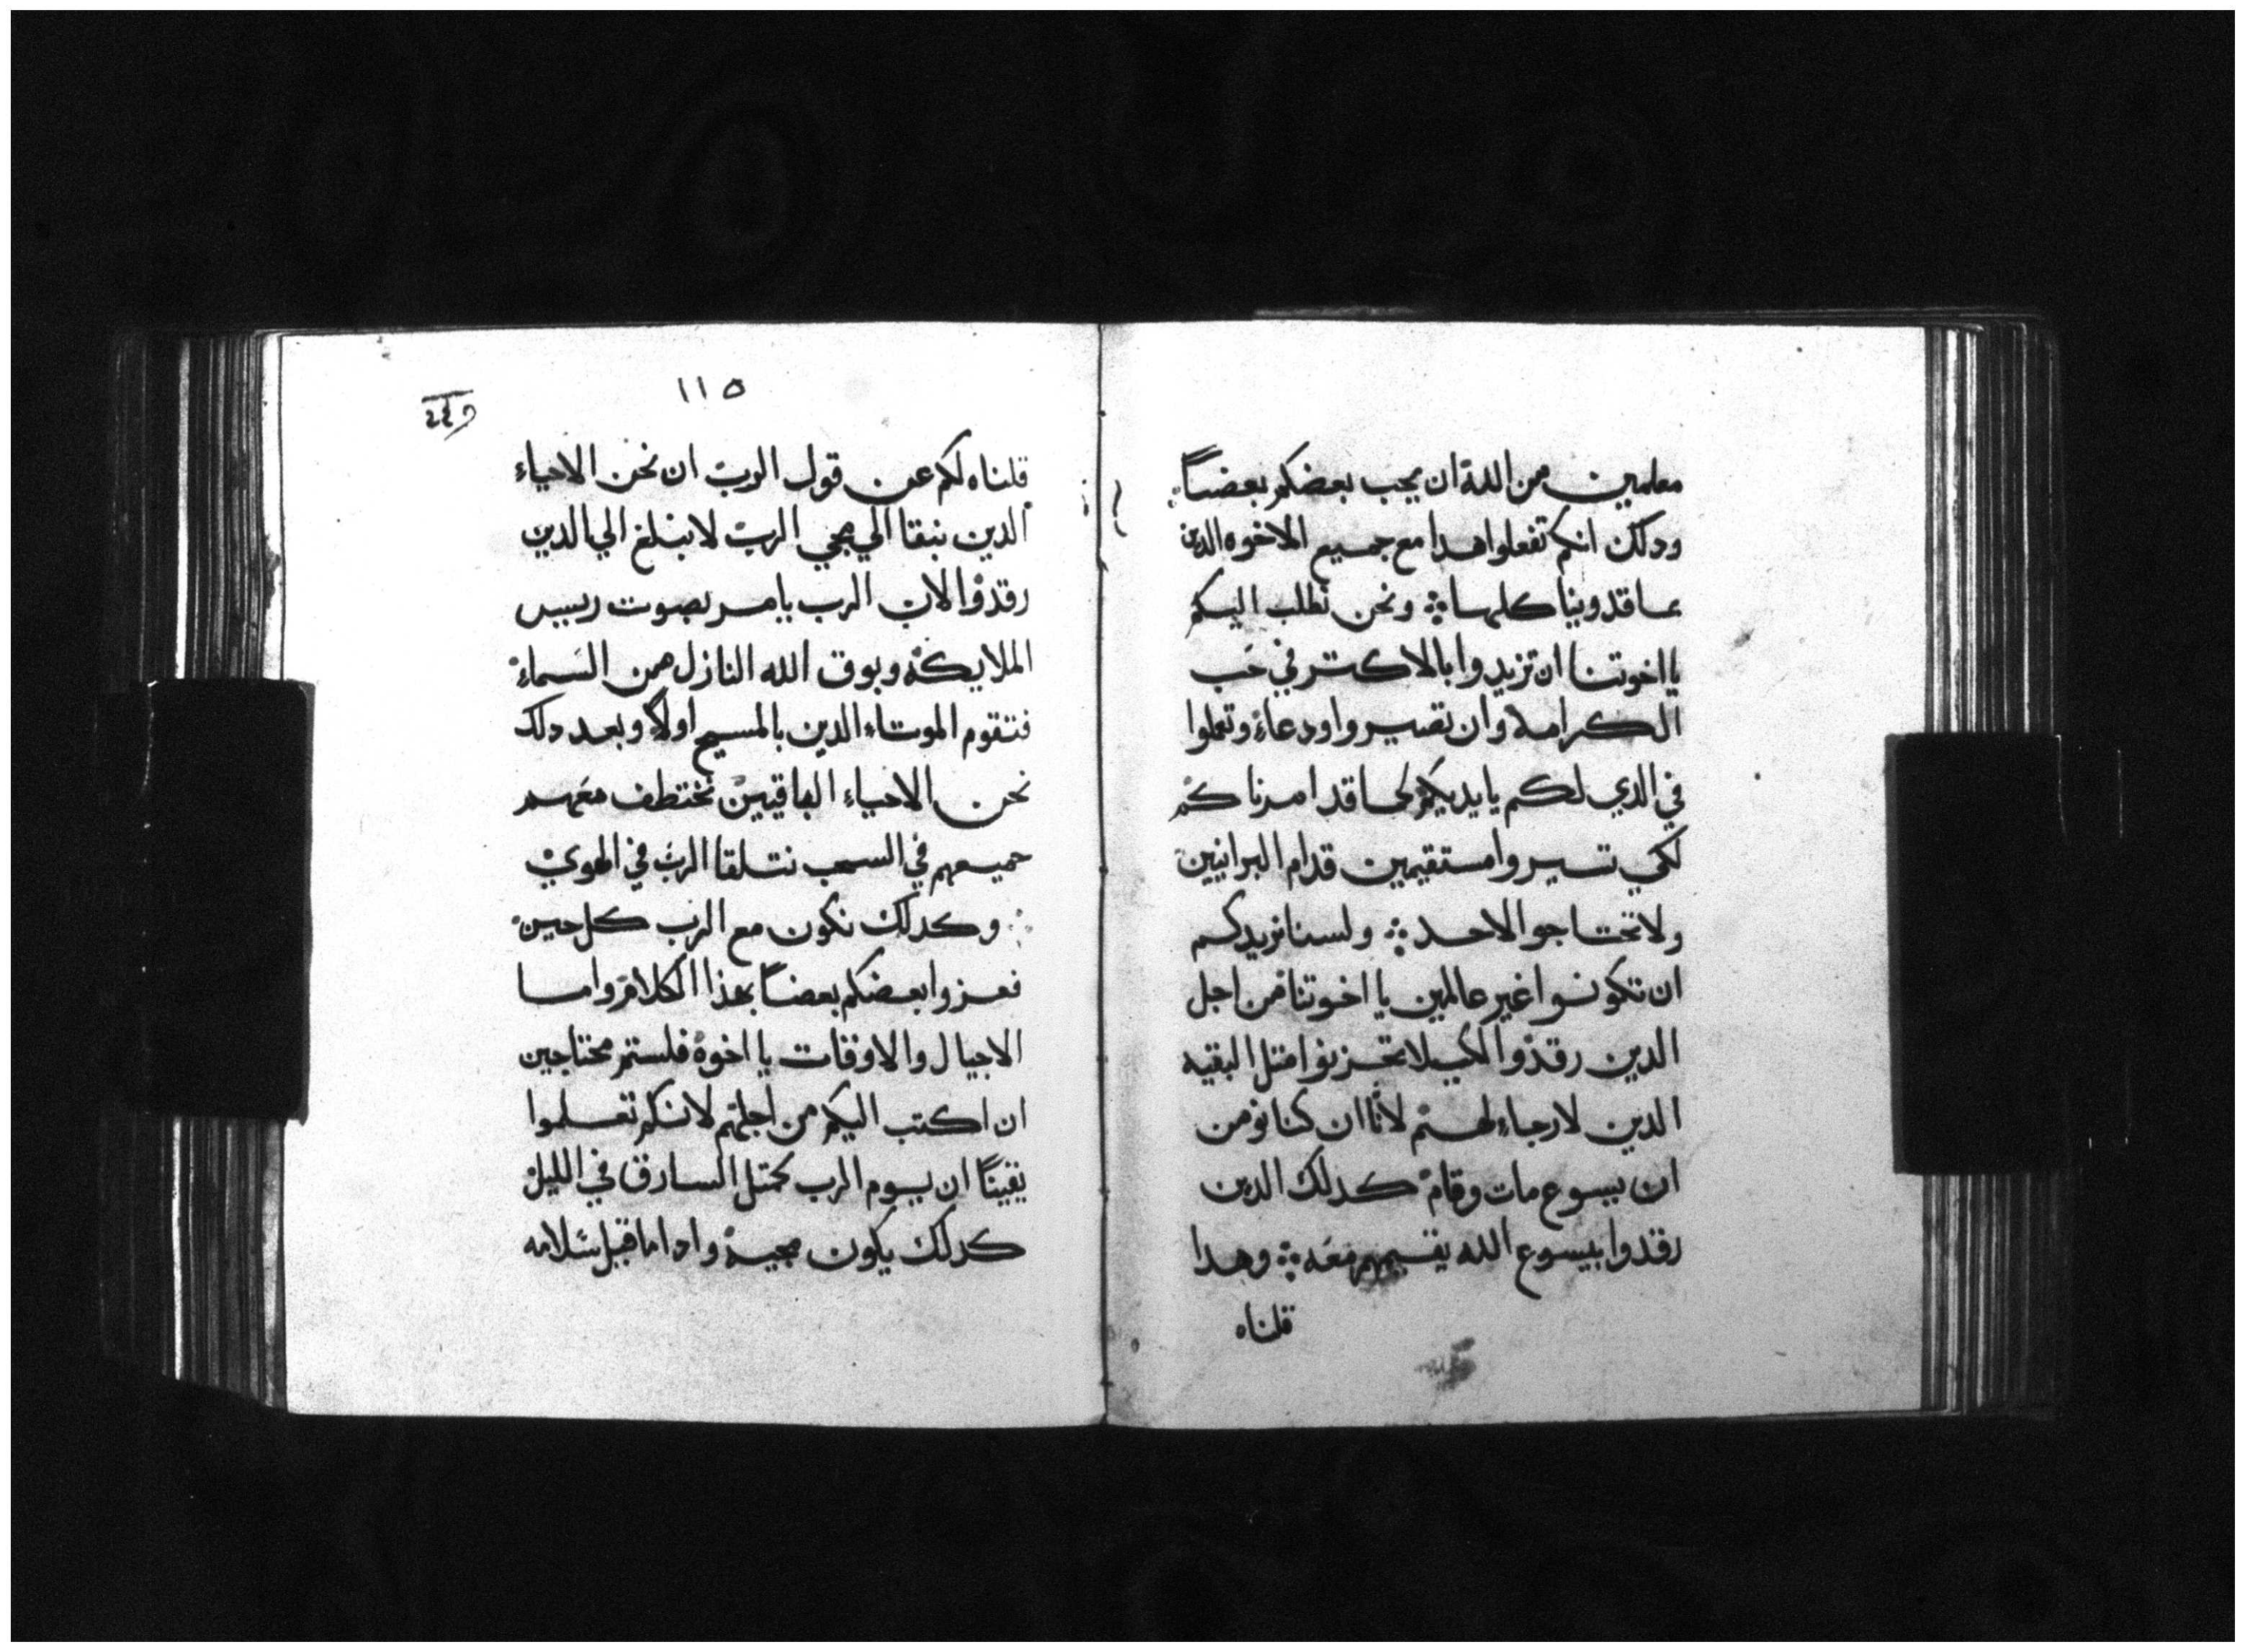 معلمين من الله ان يحب بعضكم بعضاً
ودلك انكم تفعلوا هدا مع جميع الاخوه الدين
بماقدوينا كلها ⁘ ونحن نطلب اليكم
يا اخوتنا ان تزيدوا بالاكتر في حب
الكرامه وان تصيروا ودعاء وتعملوا
في الدي لكم بايديكم كما قد امرناكم
لكي تسيروا مستقيمين قدام البرانيين
ولا تحتاجوا لاحد ⁘ ولسنا نريدكم
ان تكونوا غير عالمين يا اخوتنا من اجل
الدين رقدوا لكيلا تحزنوا متل البقيه
الدين لا رجاء لهم لأنا ان كنا نومن
ان يسوع مات وقام كدلك الدين
رقدوا بيسوع الله يقيمهم معه ⁘ وهدا
قلناه
١١٥
قلناه لكم عن قول الرب ان نحن الاحياء
الدين نبقا الي مجي الرب لا نبلغ الي الدين
رقدوا لان الرب بامر بصوت رييس
الملايكة وبوق الله النازل من السماء
فتقوم الموتاء الدين بالمسيح اولاً وبعد دلك
نحن الاحياء الباقيين نختطف معهم
جميعهم في السحب نتلقا الرب في الهوي
⁘ وكدلك نكون مع الرب كل حين
فعزوا بعضكم بعضاً بهذا الكلام واما
الاجيال والاوقات يا اخوة فلستم محتاجين
ان اكتب اليكم من اجلهم لانكم تعلموا
يقيناً ان يوم الرب كمتل السارق في الليل
كدلك يكون مجيه وادا ما قيل سلامه